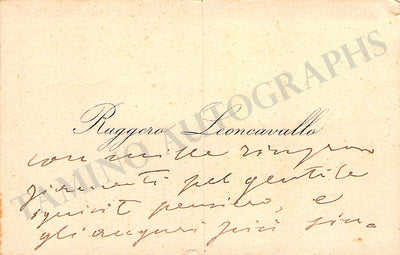 Ruggero Leoncavallo
con mille ringra
ziamenti pel gentile
squisit pensiero, e
gli auguri più sin.
TAMINO AUTOGRAPHS